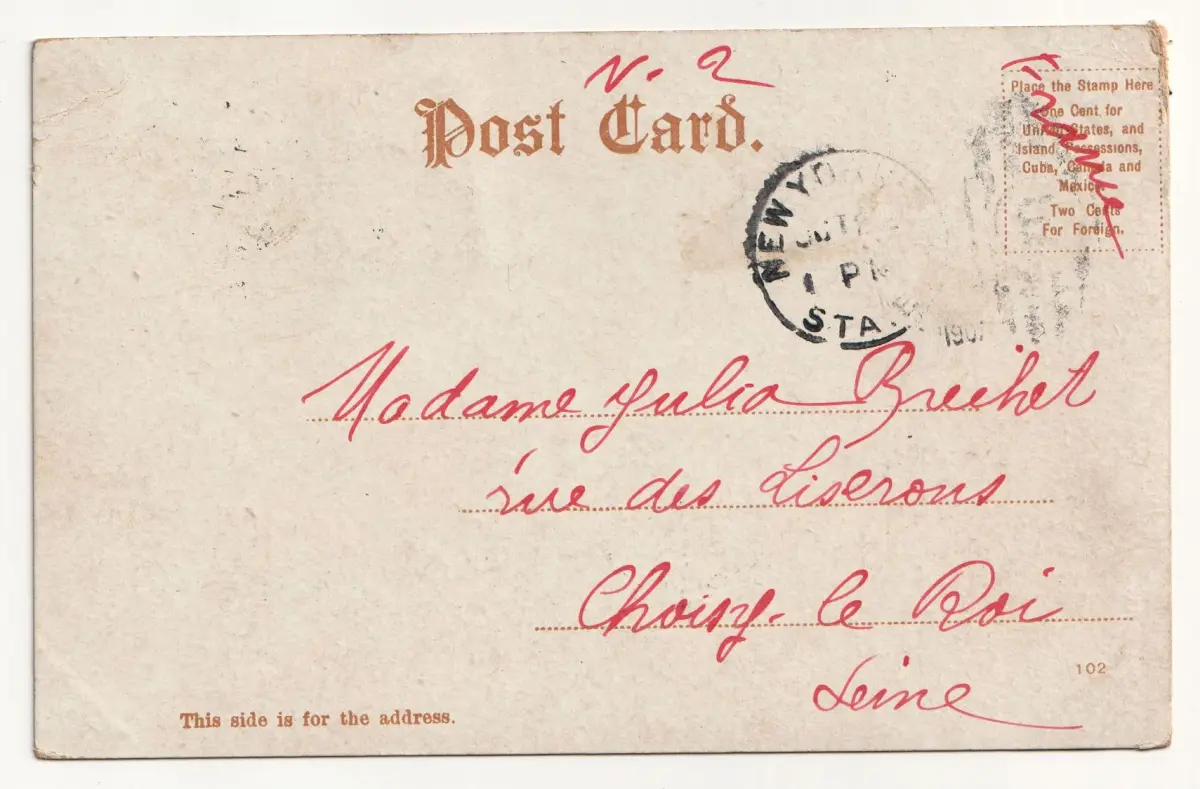 N. 2
Post Card.
France
Place the Stamp Here
One Cent for
United States, and
Island Possessions,
Cuba, Canada and
Mexico.
Two Cents
For Foreign.
NEW YORK
1 PM
STA.
1907
Madame Julia Brechet
rue des Liserons
Choisy-le Roi
Seine
102
This side is for the address.